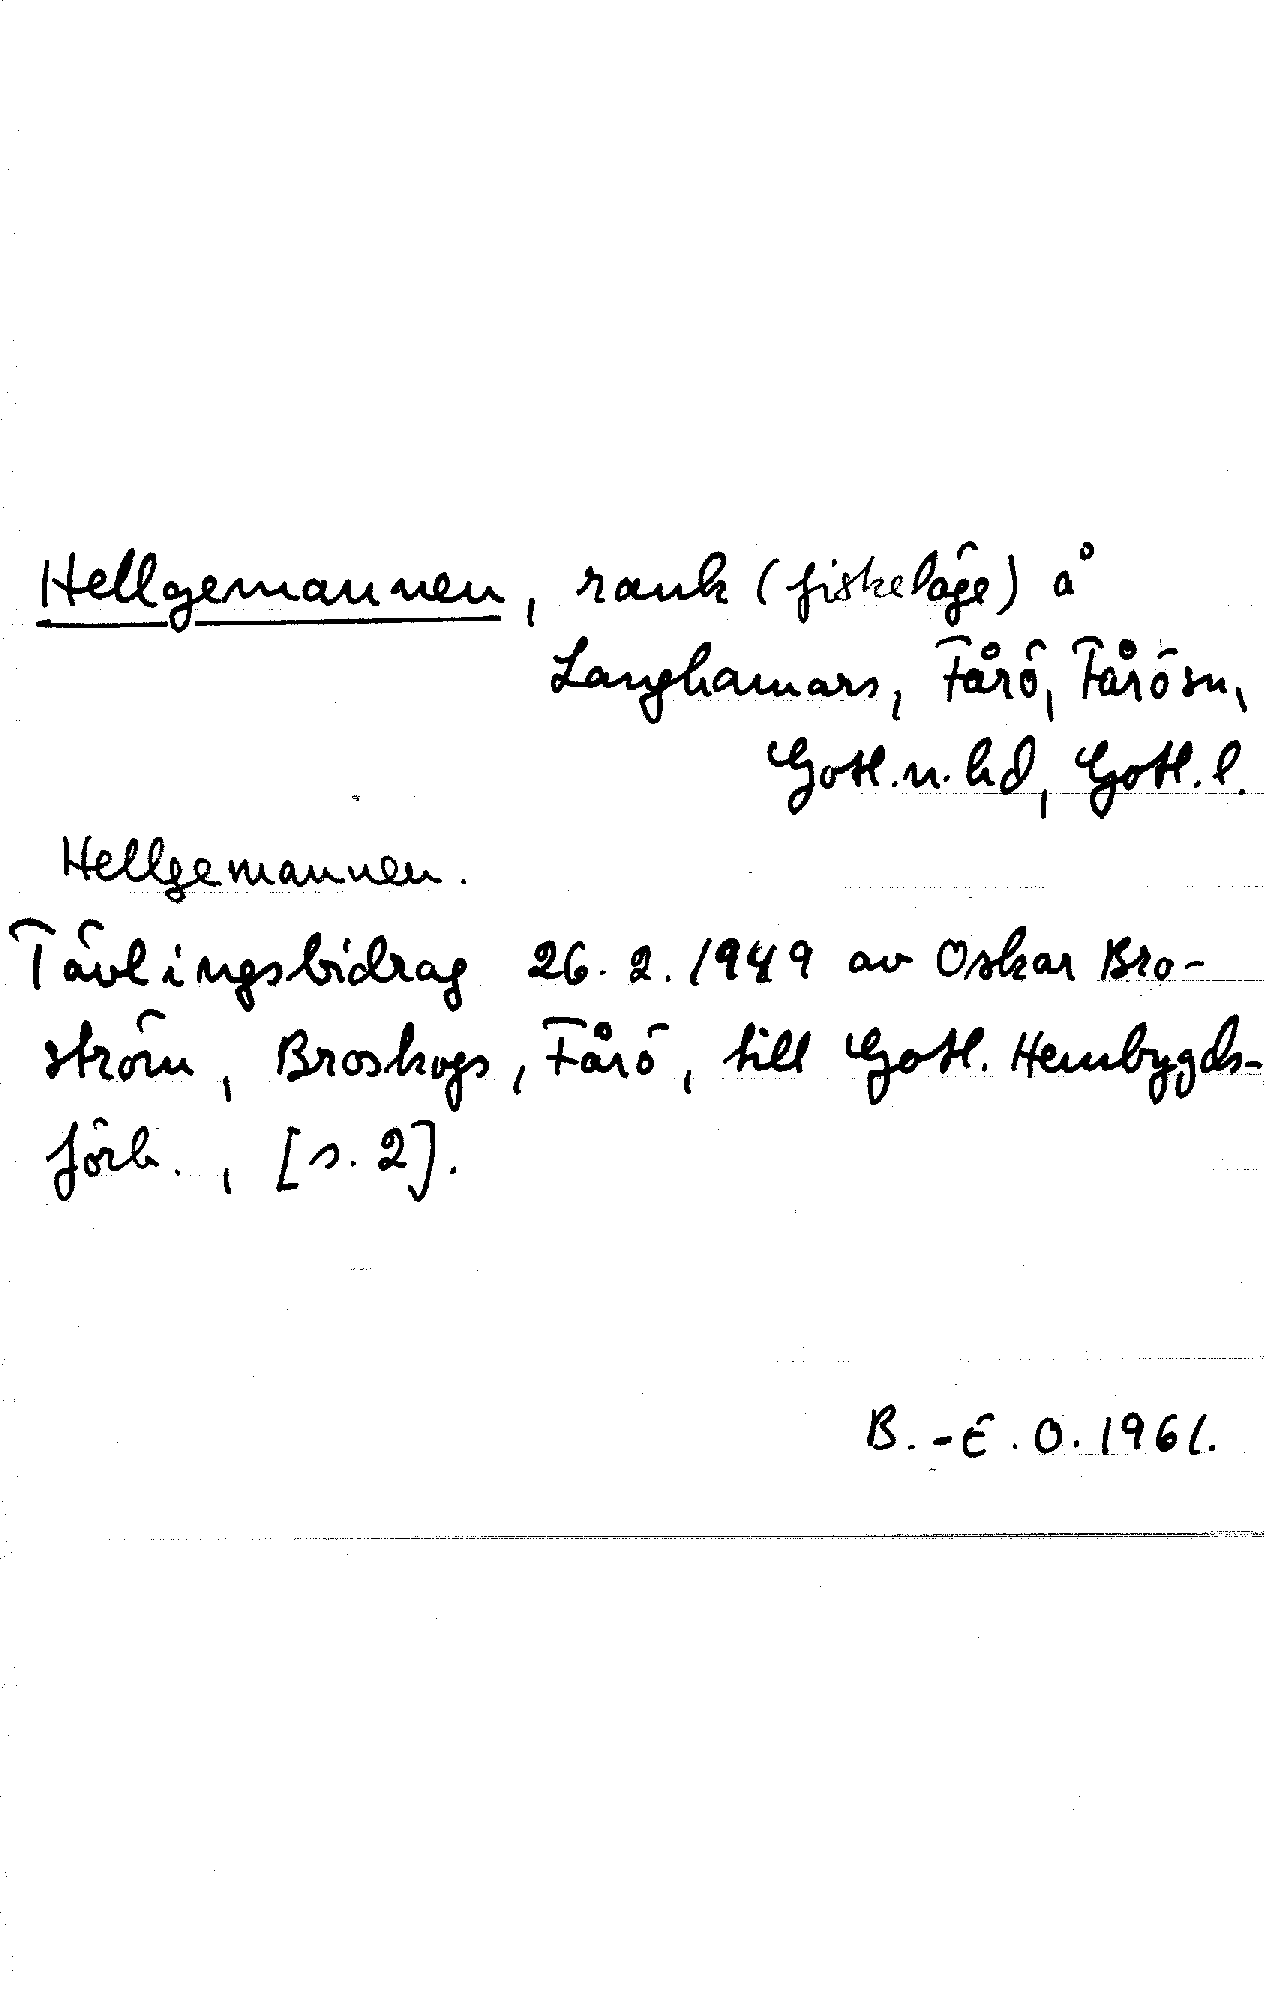 Hellgemannen, rauk (fiskeläge) å
Langhamars, Fårö, Fårö sn,
Gotl. n. hd, Gotl. l.
Hellgemannen.
Tävlingsbidrag 26. 2. 1949 av Oskar Bro-
ström, Broskogs, Fårö, till Gotl. Hembygds-
förb., [s. 2].
B.-E. O. 1961.